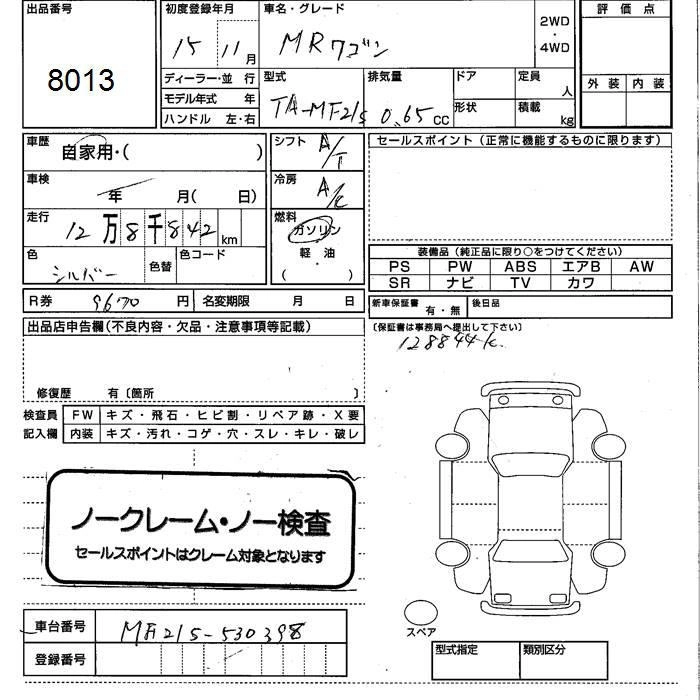 出品番号
8013
初度登録年月
15 11月
ディーラー・並行
モデル年式 年
ハンドル 左・右
車名・グレード
MRワゴン
2WD
・
4WD
型式
TA-MF21S
排気量
0.65cc
ドア
形状
定員
人
積載
kg
評価点
外装 内装
車歴
自家用・( )
車検
年 月( 日)
走行
12万8千842km
色
シルバー
色替
色コード
シフト
A/T
冷房
A/C
燃料
ガソリン
軽油
( )
セールスポイント(正常に機能するものに限ります)
装備品(純正品に限り○をつけてください)
PS PW ABS エアB AW
SR ナビ TV カワ
R券 9670円 名変期限 月 日
新車保証書 有・無 後日品
(保証書は事務局へ提出して下さい)
128844k
出品店申告欄(不良内容・欠品・注意事項等記載)
修復歴 有〔箇所 〕
検査員 FW キズ・飛石・ヒビ割・リペア跡・X要
記入欄 内装 キズ・汚れ・コゲ・穴・スレ・キレ・破レ
ノークレーム・ノー検査
セールスポイントはクレーム対象となります
車台番号 MF21S-530398
登録番号
スペア
型式指定 類別区分